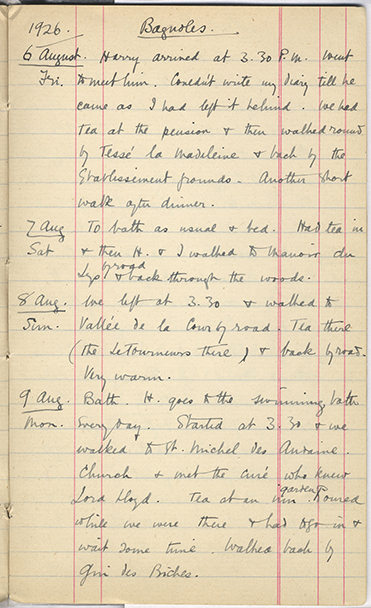 1926. Bagnoles.
6 August. Harry arrived at 3.30 P.m. Went
Fri. to meet him. Couldn't write my diary till he
came as I had left it behind. We had
Tea at the pension & then walked round
by Tessé la Madeleine & back by the
Etablissement grounds. Another short
walk after dinner.
7 Aug To bath as usual & bed. Had tea in
Sat & then H. & I walked to Manoir du
Lys by road & back through the woods.
8 Aug. We left at 3.30 & walked to
Sun. Vallée de la Cour by road. Tea there
(the LeTourneurs there) & back by road.
Very warm.
9 Aug. Bath. H. goes to the swimming bath
Mon. every day. Started at 3.30 & we
walked to St. Michel des Andaine.
Church & met the curé who knew
Lord Lloyd. Tea at an inn garden. Poured
while we were there & had to go in &
wait some time. Walked back by
des Biches.